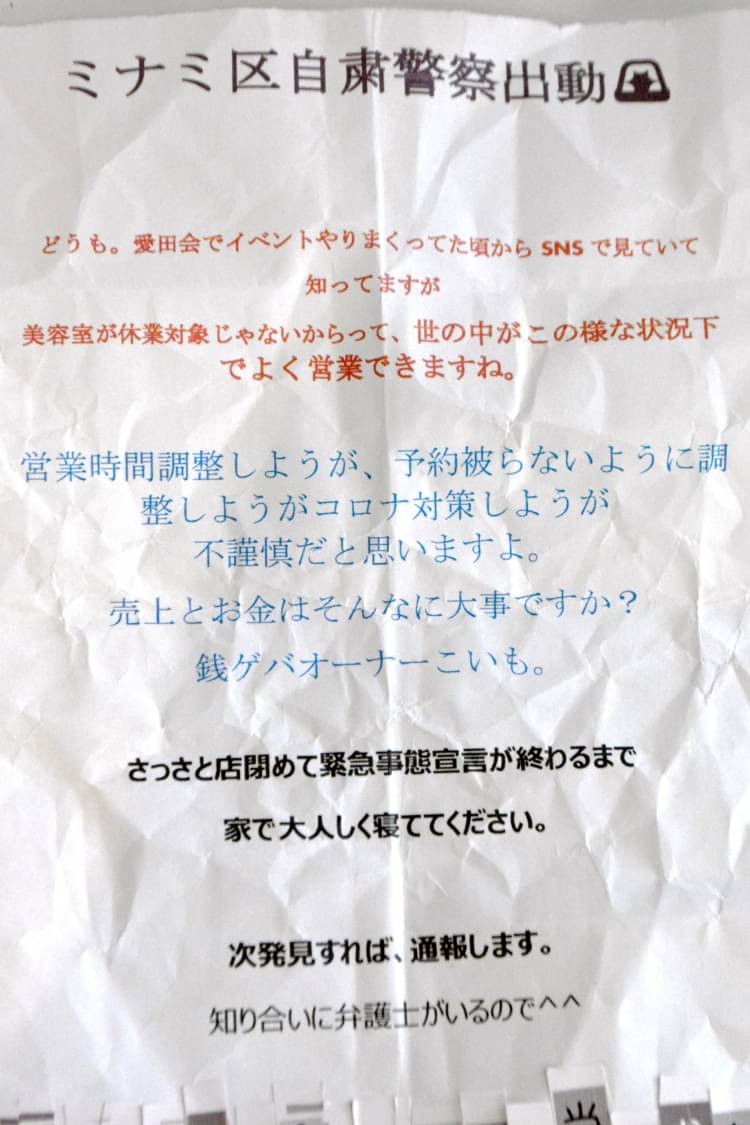 ミナミ区自粛警察出動
どうも。愛田会でイベントやりまくってた頃から SNS で見ていて
知ってますが
美容室が休業対象じゃないからって、世の中がこの様な状況下
でよく営業できますね。
営業時間調整しようが、予約被らないように調
整しようがコロナ対策しようが
不謹慎だと思いますよ。
売上とお金はそんなに大事ですか？
銭ゲバオーナーこいも。
さっさと店閉めて緊急事態宣言が終わるまで
家で大人しく寝ててください。
次発見すれば、通報します。
知り合いに弁護士がいるので^^